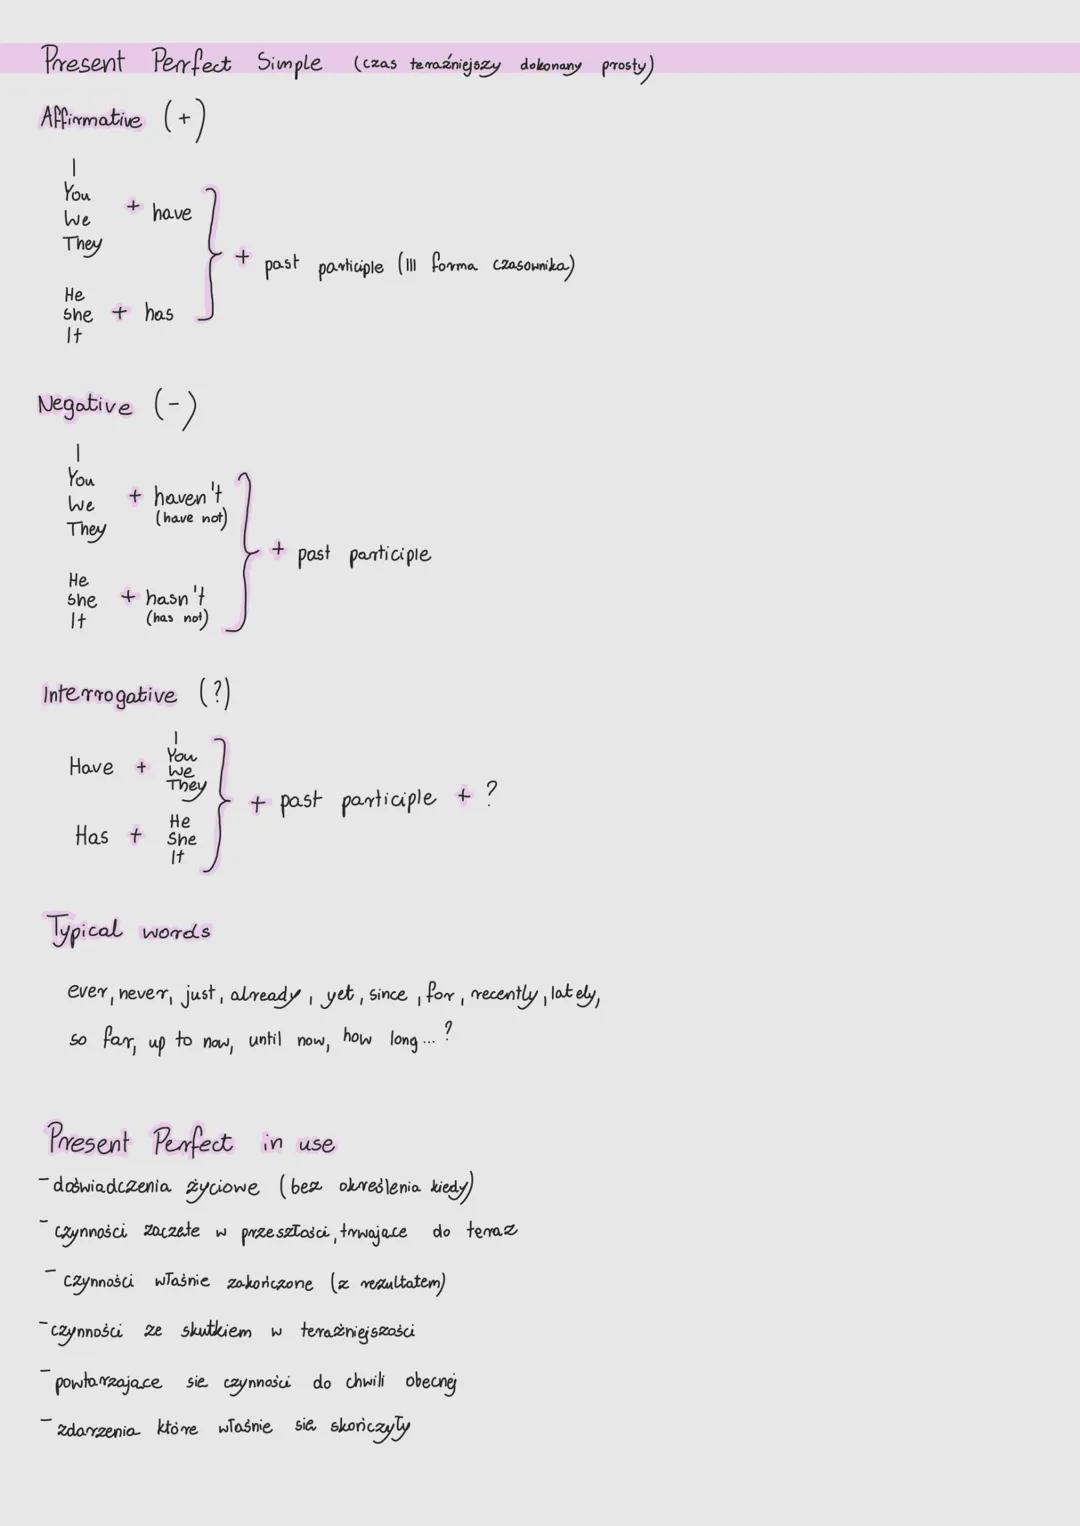 Present Perfect Simple (czas teraźniejszy dokonany prosty)
Affirmative (+)
I
You
We
They
+ have
He
She
It
+ has
+ past participle (III forma czasownika)
Negative (-)
I
You
We
They
+ haven't
(have not)
He
She
It
+ hasn't
(has not)
+ past participle
Interrogative (?)
Have +
I
You
We
They
Has +
He
She
It
+ past participle + ?
Typical words
ever, never, just, already, yet, since, for, recently, lately,
so far, up to now, until now, how long...?
Present Perfect in use
- doświadczenia życiowe (bez określenia kiedy)
- czynności zaczęte w przeszłości, trwające do teraz
- czynności właśnie zakończone (z rezultatem)
- czynności ze skutkiem w teraźniejszości
- powtarzające się czynności do chwili obecnej
- zdarzenia które właśnie się skończyły